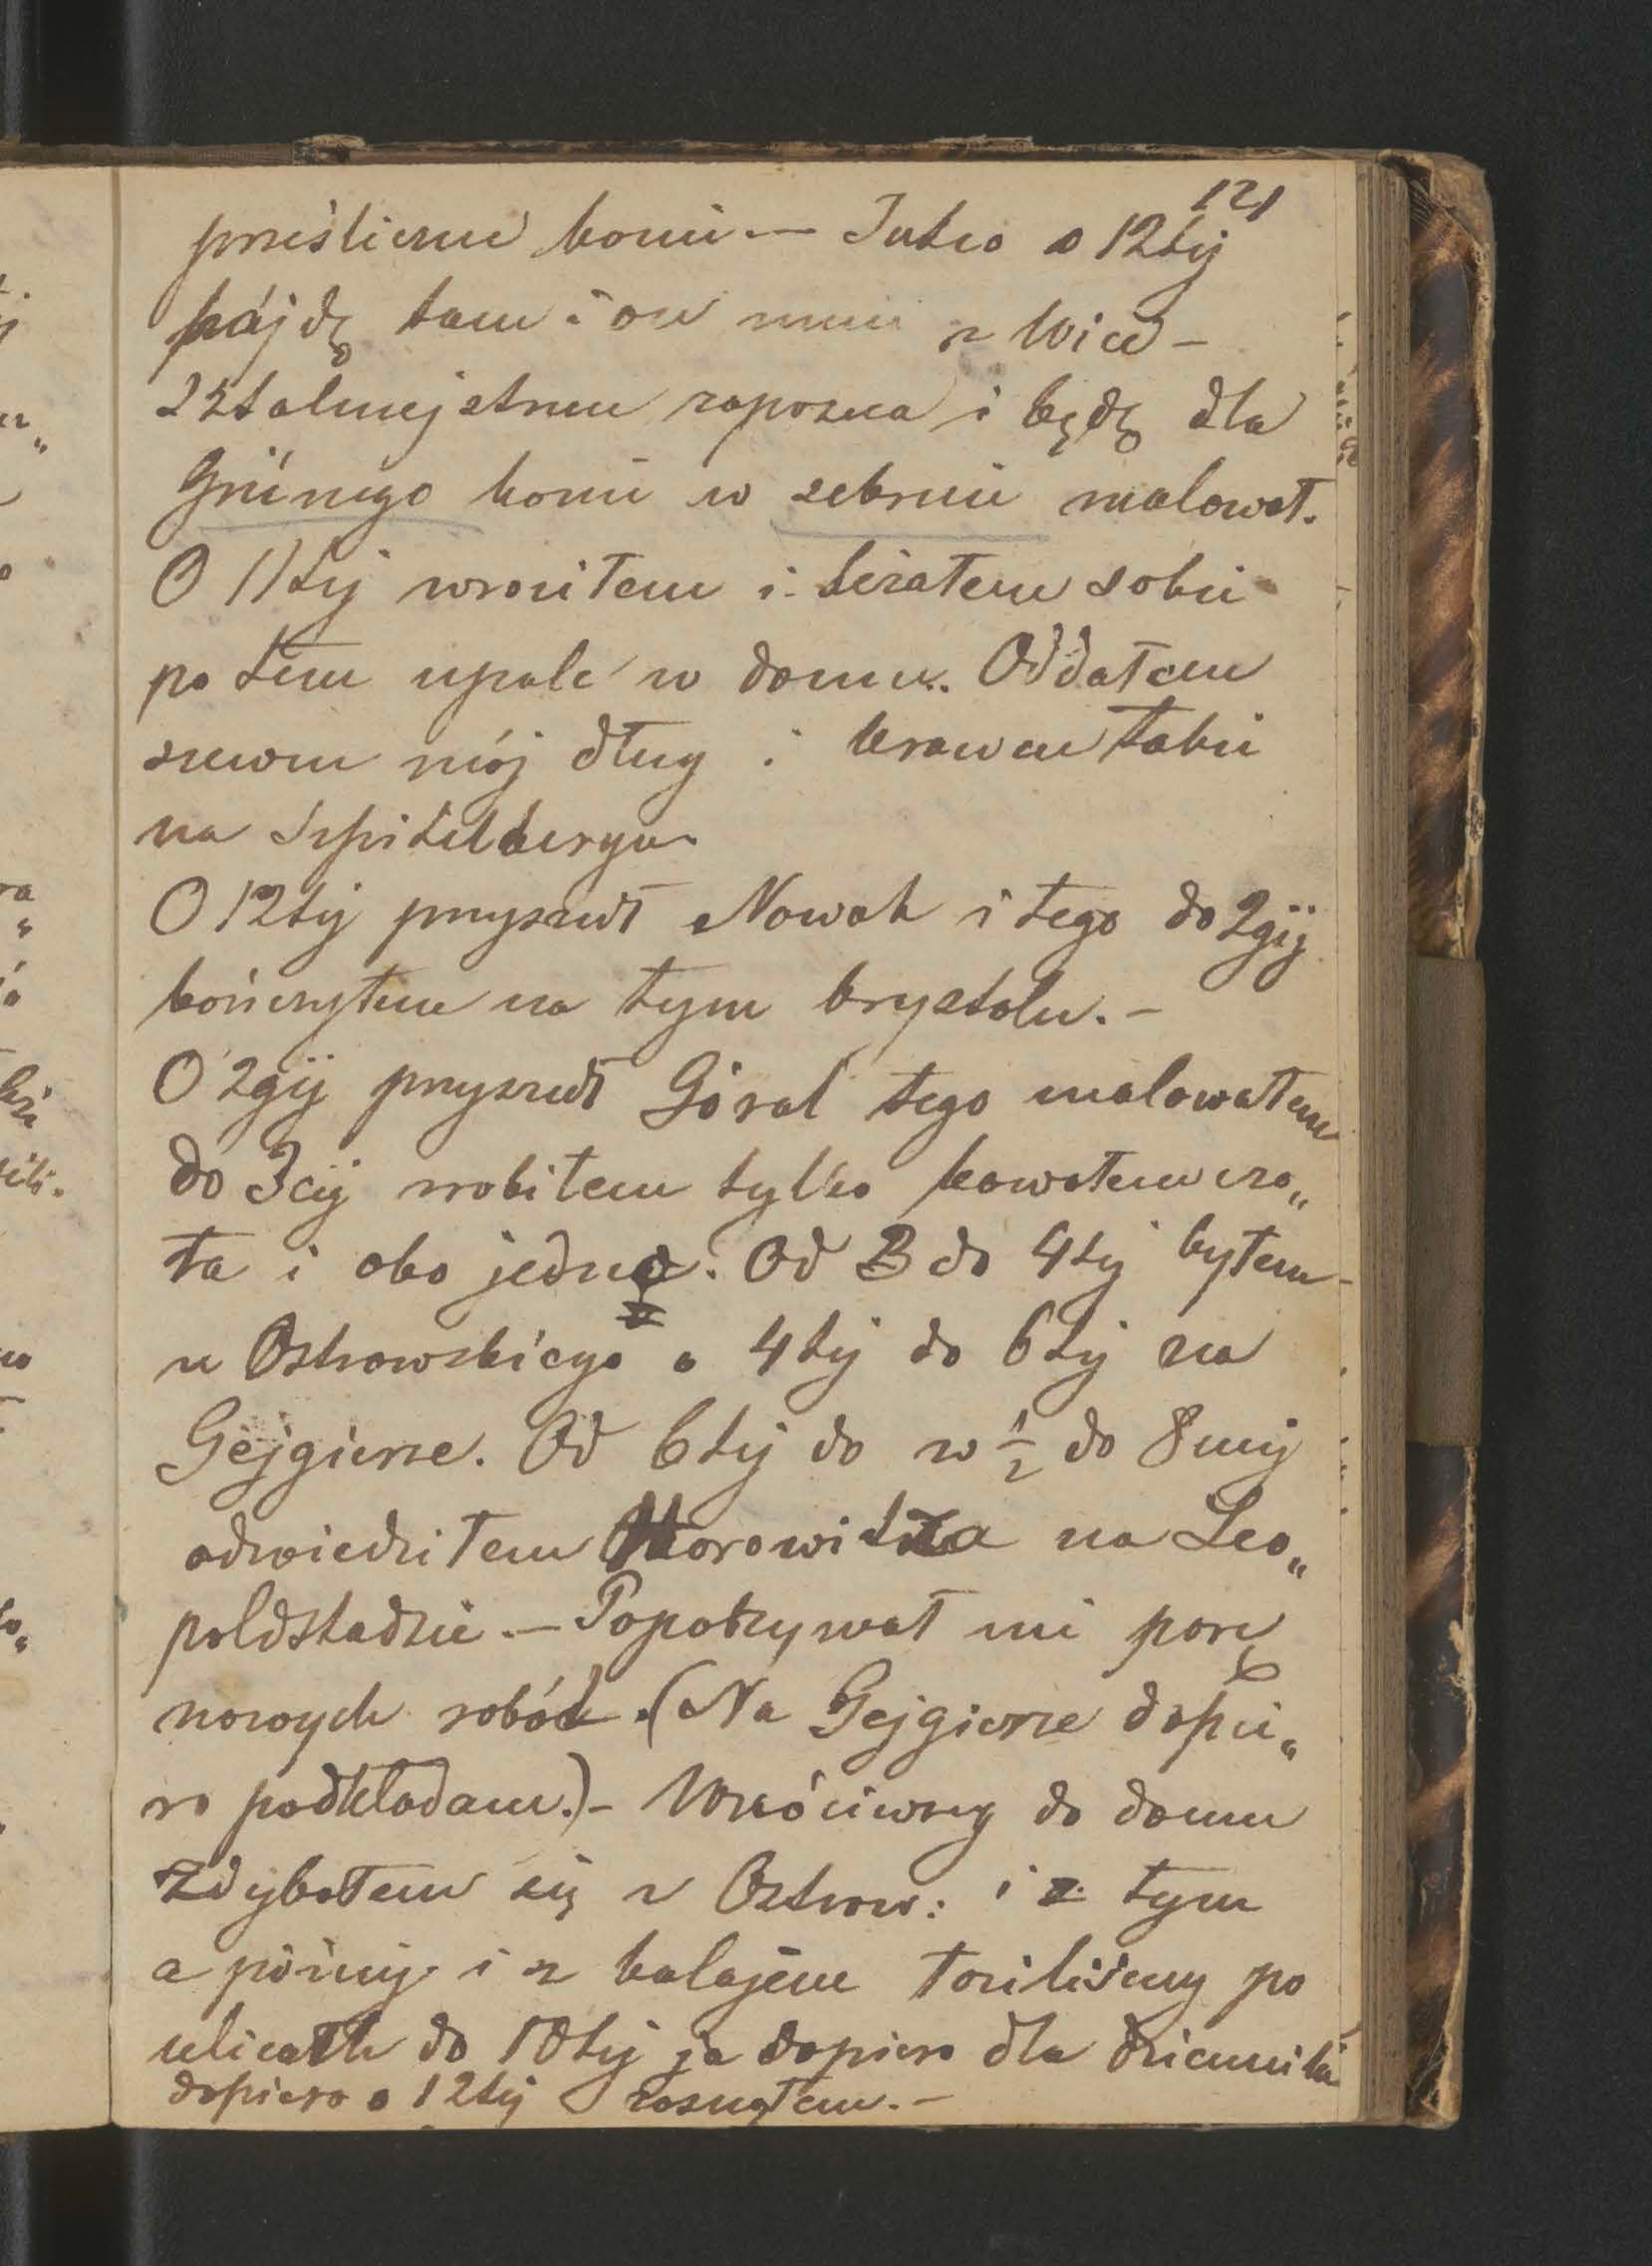 121
prześliczne konie.— Jutro o 12téj
pójdę tam i on mnie z Wice-
sztalmejstrem zapozna i będę dla
Grünego konie w zebraniu malował.
O 11téj wróciłem i leżałem sobie
po tém upale w domu. Oddałem
szewcu mój dług i krawcu także
na Szpitelbergu.
O 12téj przyszedł Nowak i tego do 2giéj
kończyłem na tym krysztolu.—
O 2giéj przyszedł Góral tego malowałem
do 3ciéj zrobiłem tylko kawałem czo„
ła i oko jedno. Od 3 do 4téj byłem
u Ostrowskiego o 4téj do 6téj na
Gejgierze. Od 6téj do w ½ do 8mej
odwiedziłem Horowitza na Leo„
poldstadzie.— Popokazywał mi parę
nowych robót. (Na Gejgierze dopie„
ro podkładam.)— Wróciwszy do domu
zdybałem się z Ostrow: i z tym
a późniéj i z kolajem łaziliśmy po
ulicach do 10téj ja dopiero dla dziennika
dopiero o 12téj zasnąłem.—